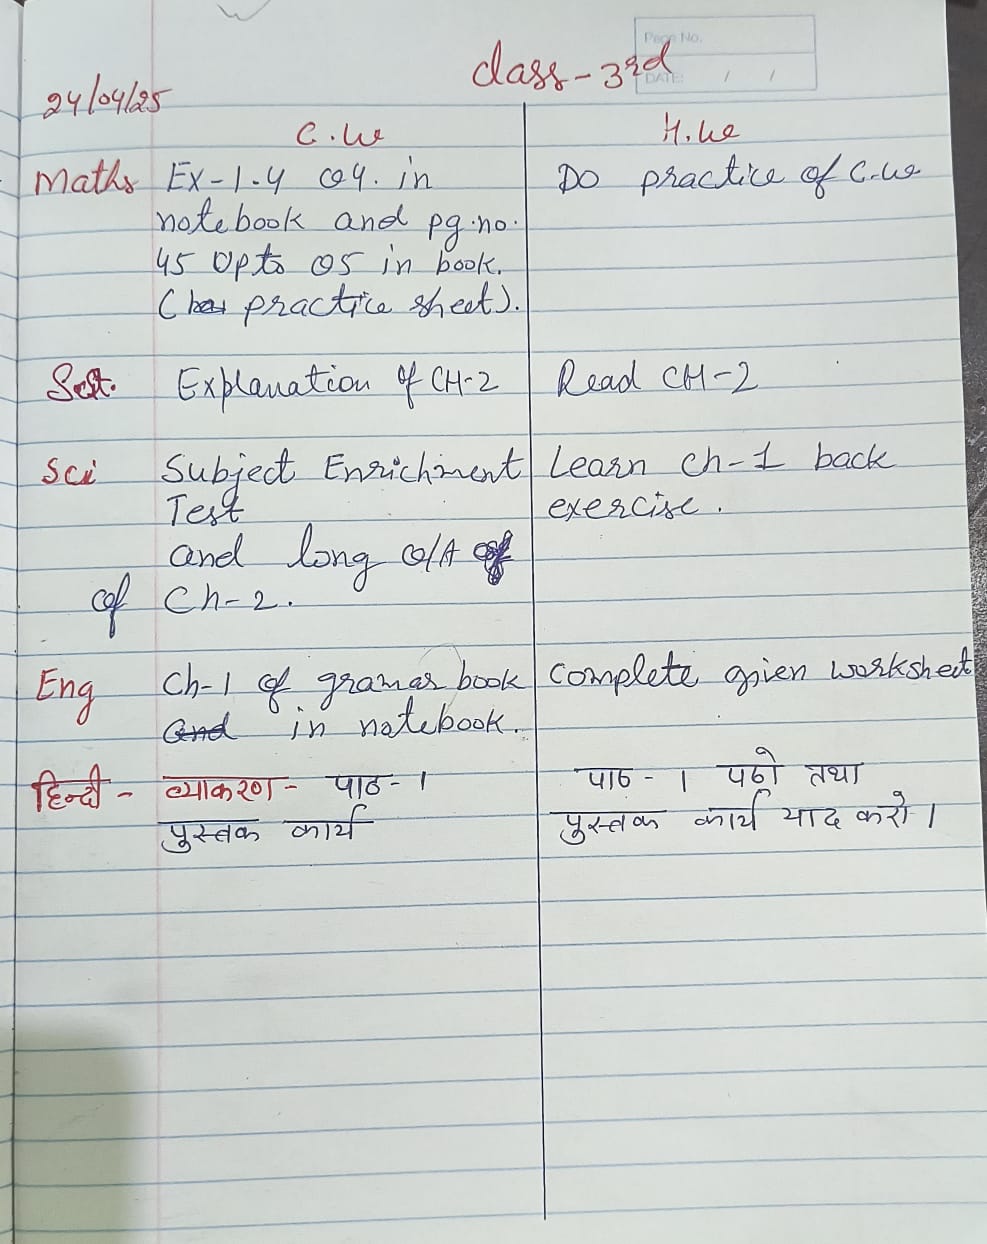 Page No.
Class - 3rd
DATE: / /
24/04/25
C.w H.w
Maths Ex-1.4 Q4. in Do practice of C.w
notebook and pg.no.
45 Upto Q5 in book.
( practice sheet).
S.St. Explanation of CH-2 Read CH-2
Sci Subject Enrichment Learn Ch-1 back
Test exercise.
and long Q/A of
of Ch-2.
Eng Ch-1 of gramar book Complete given worksheet
and in notebook.
हिन्दी - व्याकरण - पाठ - 1 पाठ - 1 पढ़ो तथा
पुस्तक कार्य पुस्तक कार्य याद करो।